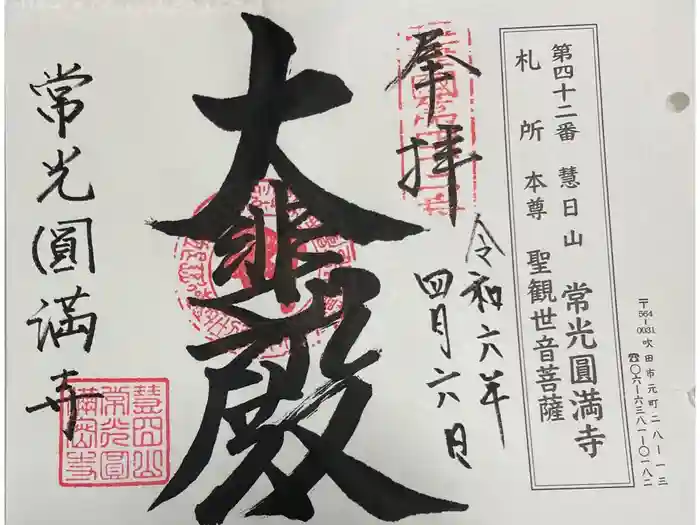 第四十二番 慧日山 常光圓満寺
札所 本尊 聖観世音菩薩
〒564-0031 吹田市元町二八ー一三
☎〇六ー六三八一ー〇一八二
奉拝
令和六年
四月六日
大悲殿
常光圓満寺
慧日山
常光圓
満寺